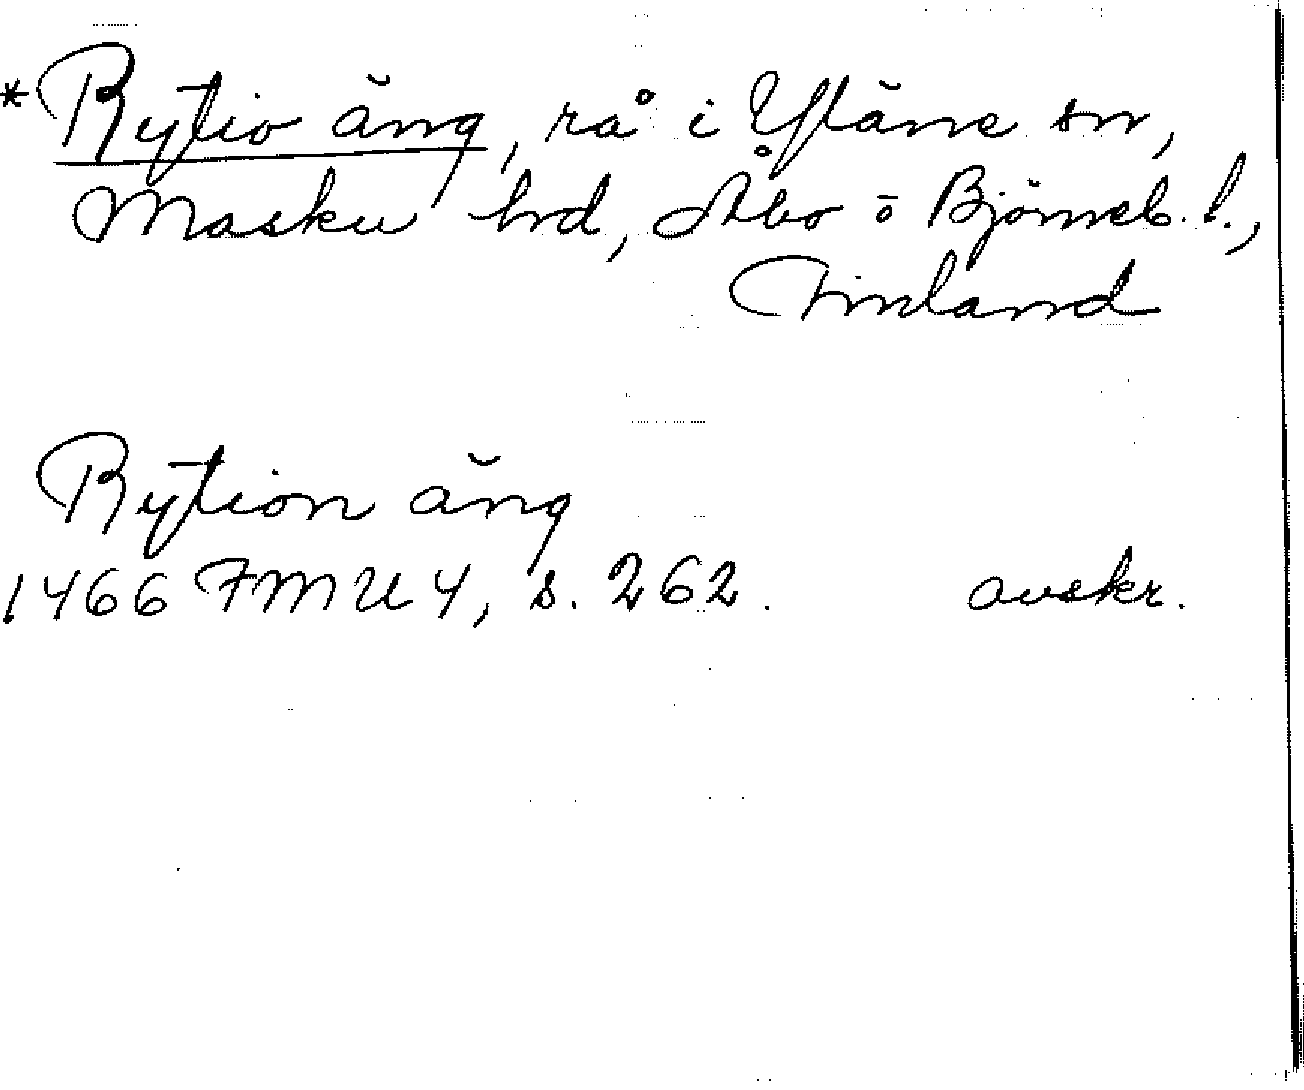 *Rytio äng, rå i Yläne sn,
Masku hd, Åbo o Björneb. l.,
Finland
Rytion äng
1466 FMU 4, s. 262. avskr.